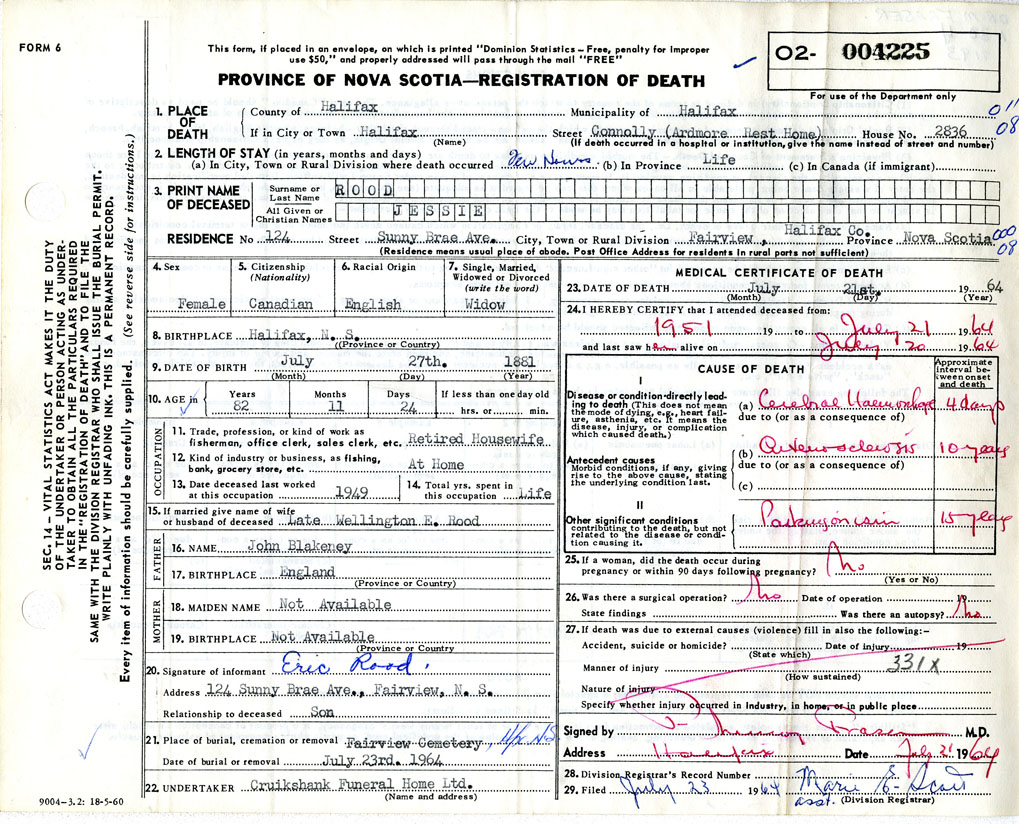 FORM 6
This form, if placed in an envelope, on which is printed "Dominion Statistics – Free, penalty for improper
use $50," and properly addressed will pass through the mail "FREE"
02- 004225
PROVINCE OF NOVA SCOTIA—REGISTRATION OF DEATH
For use of the Department only
SEC. 14 – VITAL STATISTICS ACT MAKES IT THE DUTY
OF THE UNDERTAKER OR PERSON ACTING AS UNDER-
TAKER TO OBTAIN ALL THE PARTICULARS REQUIRED
IN THE "REGISTRATION OF DEATH" AND TO FILE THE
SAME WITH THE DIVISION REGISTRAR WHO SHALL ISSUE THE BURIAL PERMIT.
WRITE PLAINLY WITH UNFADING INK. THIS IS A PERMANENT RECORD.
Every item of information should be carefully supplied. (See reverse side for instructions.)
1. PLACE OF DEATH
County of Halifax Municipality of Halifax 011
If in City or Town Halifax Street Connolly (Ardmore Rest Home) House No. 2836 08
(Name) (If death occurred in a hospital or institution, give the name instead of street and number)
2. LENGTH OF STAY (in years, months and days)
(a) In City, Town or Rural Division where death occurred Few Hours (b) In Province Life (c) In Canada (if immigrant)
3. PRINT NAME OF DECEASED
Surname or Last Name ROOD
All Given or Christian Names JESSIE
RESIDENCE No 124 Street Sunny Brae Ave. City, Town or Rural Division Fairview, Halifax Co. Province Nova Scotia 000 08
(Residence means usual place of abode. Post Office Address for residents in rural parts not sufficient)
4. Sex Female
5. Citizenship (Nationality) Canadian
6. Racial Origin English
7. Single, Married, Widowed or Divorced (write the word) Widow
8. BIRTHPLACE Halifax, N. S.
(Province or Country)
9. DATE OF BIRTH July 27th. 1881
(Month) (Day) (Year)
10. AGE in Years 82 Months 11 Days 24 If less than one day old hrs. or min.
OCCUPATION
11. Trade, profession, or kind of work as
fisherman, office clerk, sales clerk, etc. Retired Housewife
12. Kind of industry or business, as fishing,
bank, grocery store, etc. At Home
13. Date deceased last worked at this occupation 1949
14. Total yrs. spent in this occupation Life
15. If married give name of wife
or husband of deceased Late Wellington E. Rood
FATHER
16. NAME John Blakeney
17. BIRTHPLACE England
(Province or Country)
MOTHER
18. MAIDEN NAME Not Available
19. BIRTHPLACE Not Available
(Province or Country)
20. Signature of informant Eric Rood
Address 124 Sunny Brae Ave., Fairview, N. S.
Relationship to deceased Son
21. Place of burial, cremation or removal Fairview Cemetery, Hfx N.S.
Date of burial or removal July 23rd. 1964
22. UNDERTAKER Cruikshank Funeral Home Ltd.
(Name and address)
9004–3.2: 18-5-60
MEDICAL CERTIFICATE OF DEATH
23. DATE OF DEATH July 21st. 1964
(Month) (Day) (Year)
24. I HEREBY CERTIFY that I attended deceased from:
1951 19 to July 21 1964
and last saw h alive on July 20 1964
CAUSE OF DEATH
Approximate interval between onset and death
I
Disease or condition directly leading to death (This does not mean the mode of dying, e.g., heart failure, asthenia, etc. It means the disease, injury, or complication which caused death.)
(a) Cerebral Haemorrhage 4 days
due to (or as a consequence of)
Antecedent causes
Morbid conditions, if any, giving rise to the above cause, stating the underlying condition last.
(b) Arteriosclerosis 10 years
due to (or as a consequence of)
(c)
II
Other significant conditions
contributing to the death, but not related to the disease or condition causing it.
Parkinsonism 15 years
25. If a woman, did the death occur during
pregnancy or within 90 days following pregnancy? No
(Yes or No)
26. Was there a surgical operation? No Date of operation 19
State findings Was there an autopsy? No
27. If death was due to external causes (violence) fill in also the following:–
Accident, suicide or homicide? Date of injury 19
(State which)
Manner of injury 331X
(How sustained)
Nature of injury
Specify whether injury occurred in Industry, in home, or in public place
Signed by Fraser M.D.
Address Halifax Date July 21 1964
28. Division Registrar's Record Number
29. Filed July 23 1964 Marie E. Scott
asst. (Division Registrar)